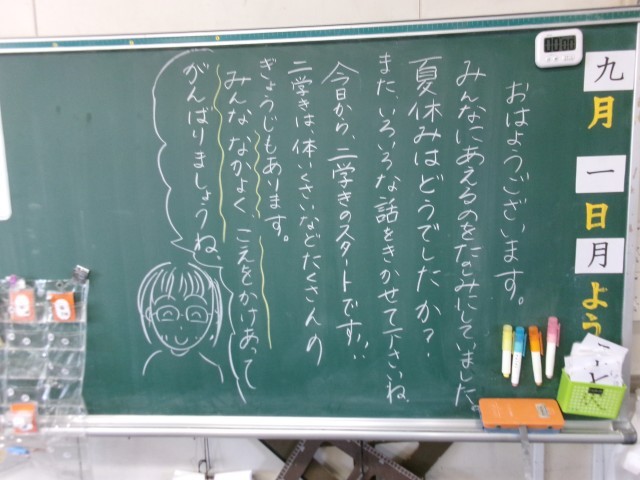 九月一日月よう
おはようございます。
みんなにあえるのをたのみにしていました。
夏休みはどうでしたか？
また、いろいろな話をきかせて下さいね。
今日から、二学きのスタートです!!
二学きは、体いくさいなどたくさんの
ぎょうじもあります。
みんな なかよく、こえをかけあって
がんばりましょうね、